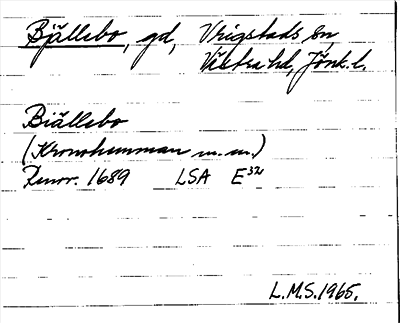 Bjällebo, gd, Vrigstads sn,
Västra hd, Jönk. l.
Biällebo
(Kronohemman m.m.)
1689 LSA E³²
L.M.S. 1965.